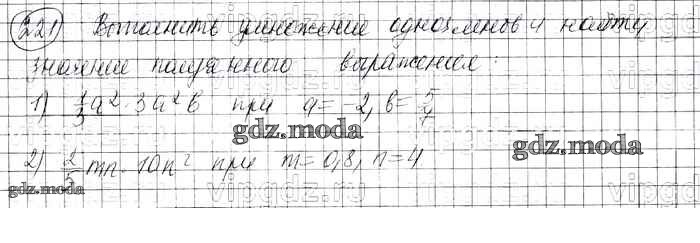 221) Выполнить умножение одночленов и найти
значение полученного выражения:
1) 1/3 a² · 3a²b при a = -2, b = 5/7
gdz.moda
gdz.moda
2) 2/5 mn · 10n² при m = 0,8, n = 4
gdz.moda
vipgdz.ru